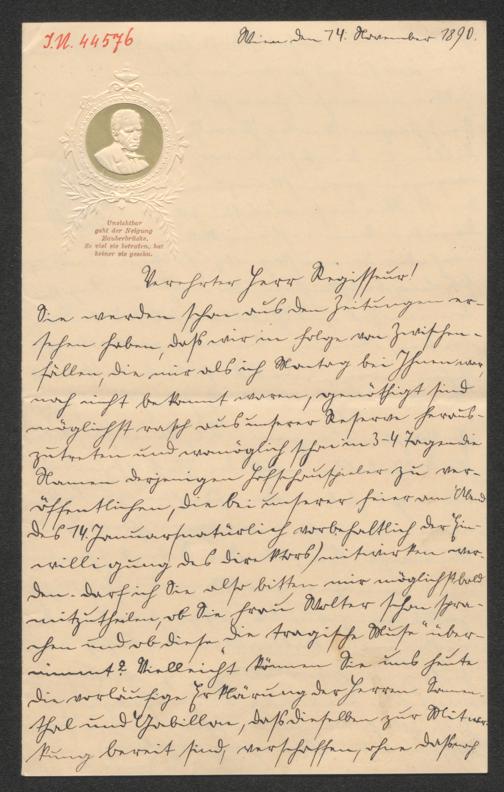 I.N. 44576
Wien den 14. November 1890.
Unsichtbar
geht der Neigung
Zauberbrücke,
So viel sie betraten, hat
keiner sie gesehn.
Verehrter Herr Regisseur!
Sie werden schon aus den Zeitungen er-
sehen haben, daß wir in Folge von Zwischen-
fällen, die mir als ich Montag bei Ihnen war,
noch nicht bekannt waren, genöthigt sind
möglichst rasch aus unserer Reserve heraus-
zutreten und womöglich schon in 3-4 Tagen die
Namen derjenigen Hofschauspieler zu ver-
öffentlichen, die bei unserer Feier am Abend
des 14. Januars (natürlich vorbehaltlich der Ein-
willigung des Direktors) mitwirken wer-
den. Darf ich Sie also bitten mir möglichst bald
mitzutheilen, ob Sie Frau Wolter schon spra-
chen und ob diese die "tragische Muse" über-
nimmt? Vielleicht können Sie uns heute
die vorläufige Erklärung der Herren Sonnen-
thal und Gabillon, daß dieselben zur Mitwir-
kung bereit sind, verschaffen, ohne daß noch